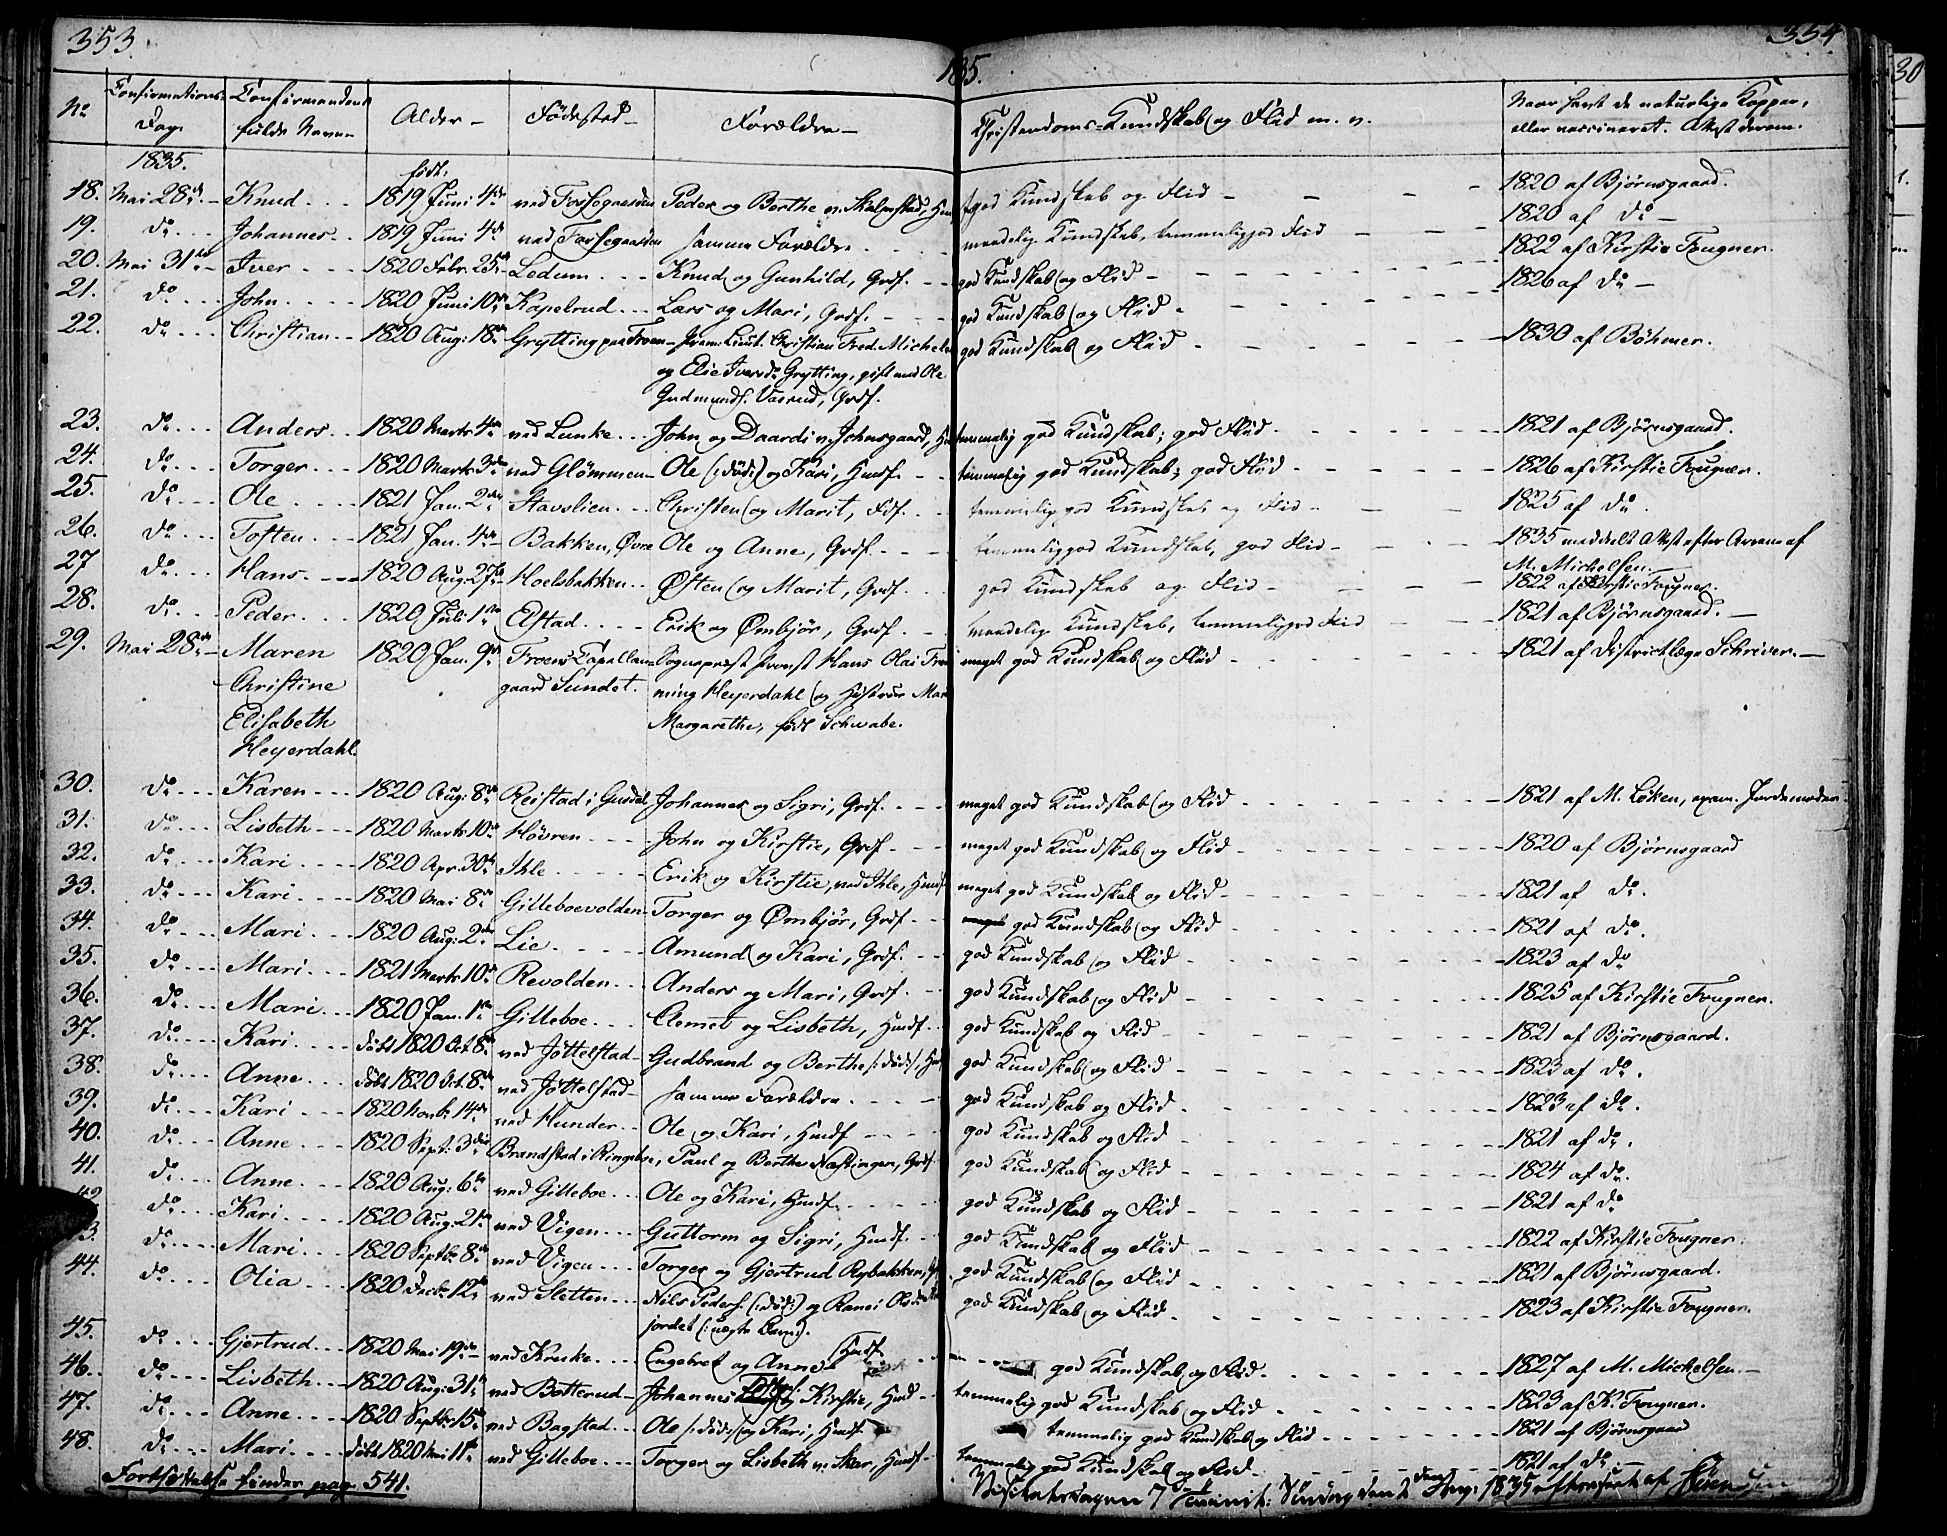 353.
354
1835.
No Confirmations Dag. Confirmandens fulde Navn Alder Fødested Forældre Christendoms-Kundskab og Flid m. v. Naar havt de naturlige Kopper, eller vaccineret. Attest derom.
1835. født:
18. Mai 28de Knud 1819 Juni 4de ved Forsegaarden Peder og Berthe v. Skalmstad, god Kundskab og Flid 1820 af Bjørnsgaard.
19. do Johannes 1819 Juni 4de ved Forsegaarden samme Forældre maadelig Kundskab, temmeliggod Flid 1820 af do
20. Mai 31te Iver 1820 Febr. 25de Ledum Knud og Gunhild, Grdf. god Kundskab og Flid 1822 af Kirstie Fougner.
21. do John 1820 Juni 10de Kapelrud Lars og Mari, Grdf. god Kundskab og Flid 1826 af do
22. do Christian 1820 Aug: 18de Grytting paa Froen Prem: Lieut. Christian Fred. Michels god Kundskab og Flid 1830 af Böhmer.
og Elie Iversdr Grytting, gift med Ole
Gudmunds. Vasrud, Grdf.
23. do Anders 1820 Marts 4de ved Lunke John og Daardi v. Johnsgaard, temmelig god Kundskab; god Flid 1821 af Bjørnsgaard.
24. do Torger 1820 Marts 3die ved Glömmen Ole (:död:) og Kari, Husdf. temmelig god Kundskab; god Flid 1826 af Kirstie Fougner.
25. do Ole 1821 Jan. 2den Stavslien Christen og Marit, Fdf. temmelig god Kundskab og Flid 1825 af do
26. do Tosten 1821 Jan. 4de Bakken, Øvre Ole og Anne, Grdf. temmeliggod Kundskab, god Flid 1835 meddelt Attest efter Arrene af
M. Michelsen.
27 do Hans 1820 Aug: 27de Hoelsbakken Østen og Marit, Grdf. god Kundskab og Flid 1822 af Kirstie Fougner
28. do Peder 1820 Juli 1ste Elstad Erik og Ømbjør, Grdf. maadelig Kundskab, temmeliggod Flid 1821 af Bjørnsgaard.
29. Mai 28de Maren 1820 Jan. 9de Froens Capellan- Sognepræst Provst Hans Olai meget god Kundskab og Flid 1821 af Districtlæge Schriver.
Christine gaard Sundet. ming Heyerdahl og Hustrue
Elisabeth Margarethe, født Schwabe.
Heyerdahl.
30. do Karen 1820 Aug: 8de Reistad i Gusdal Johannes og Sigri, Grdf. meget god Kundskab og Flid 1821 af M. Løken, exam. Jordemoder
31. do Lisbeth 1820 Marts 10de Høvren John og Kirstie, Grdf. meget god Kundskab og Flid 1820 af Bjørnsgaard
32. do Kari 1820 Apr. 30te Ihle Erik og Kirstie, ved Ihle, Husdf. meget god Kundskab og Flid 1821 af do
33. do Kari 1820 Mai 8de Gilleboevolden Torger og Ømbjør, Grdf. god Kundskab og Flid 1821 af do
34. do Mari 1820 Aug: 2den Lie Amund og Kari, Grdf. god Kundskab og Flid 1823 af do
35. do Mari 1821 Marts 10de Revolden Anders og Mari, Grdf. god Kundskab og Flid 1825 af Kirstie Fougner.
36. do Mari 1820 Jan. 1ste Gilleboe Clemet og Lisbeth, Husdf. god Kundskab og Flid 1821 af Bjørnsgaard.
37. do Kari døbt 1820 Oct. 8de ved Jøttelstad Gudbrand og Berthe :död:, god Kundskab og Flid 1823 af do
38. do Anne døbt 1820 Oct. 8de ved Jøttelstad samme Forældre god Kundskab og Flid 1823 af do
39. do Kari 1820 Novbr. 14de ved Hunder Ole og Kari, Husdf god Kundskab og Flid 1821 af do
40. do Anne 1820 Septbr. 3die Brandstad i Ringeboe, Paul og Berthe Næstingen, Grdf god Kundskab og Flid 1824 af do
41. do Anne 1820 Aug: 6te ved Gilleboe Ole og Kari, Husdf. god Kundskab og Flid 1821 af do
42 do Kari 1820 Aug: 21de ved Vigen Guttorm og Sigri, Husdf. god Kundskab og Flid 1822 af Kirstie Fougner.
43. do Mari 1820 Septbr 8de ved Vigen Torger og Gjertrud Rybakken, god Kundskab og Flid 1821 af Bjørnsgaard.
44. do Olia 1820 Decbr 12te ved Sletten Nils Peders. (:död:) og Ranei god Kundskab og Flid 1823 af Kirstie Fougner.
jordet (:uægte Barn:).
45. do Gjertrud 1820 Mai 19de ved Kruke Engebret og Anne Husdf. god Kundskab og Flid 1827 af M. Mickelsen.
46. do Lisbeth 1820 Aug: 31te ved Botterud Johannes og Kirstie, Husd temmelig god Kundskab og Flid 1823 af K. Fougner.
47. do Anne 1820 Septbr 15de ved Bagstad Ole :död: og Kari, Husdf temmelig god Kundskab og Flid 1821 af Bjørnsgaard
48. do Mari døbt 1820 Mai 11te ved Gilleboe Torger og Lisbeth v. Skar, Husdf. temmelig god Kundskab og Flid 1821 af do
Fortsættelse findes pag. 541.
Visitatsdagen 7 Trinit: Søndag den 2den Aug: 1835 efterseet af